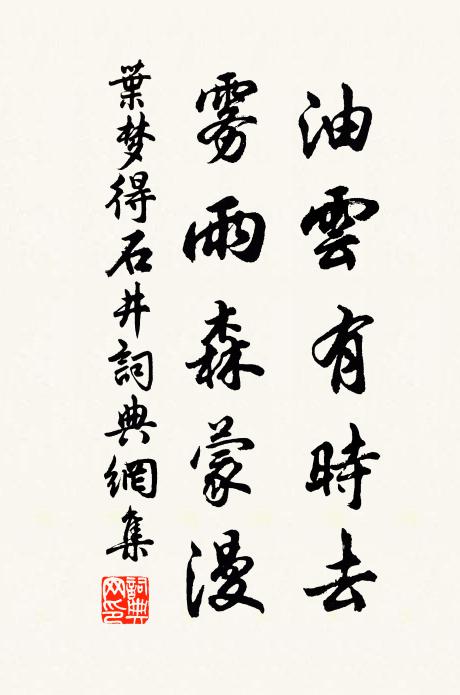 油雲有時去
雾雨森蒙漫
葉梦得石井詞典網集
詞典网印